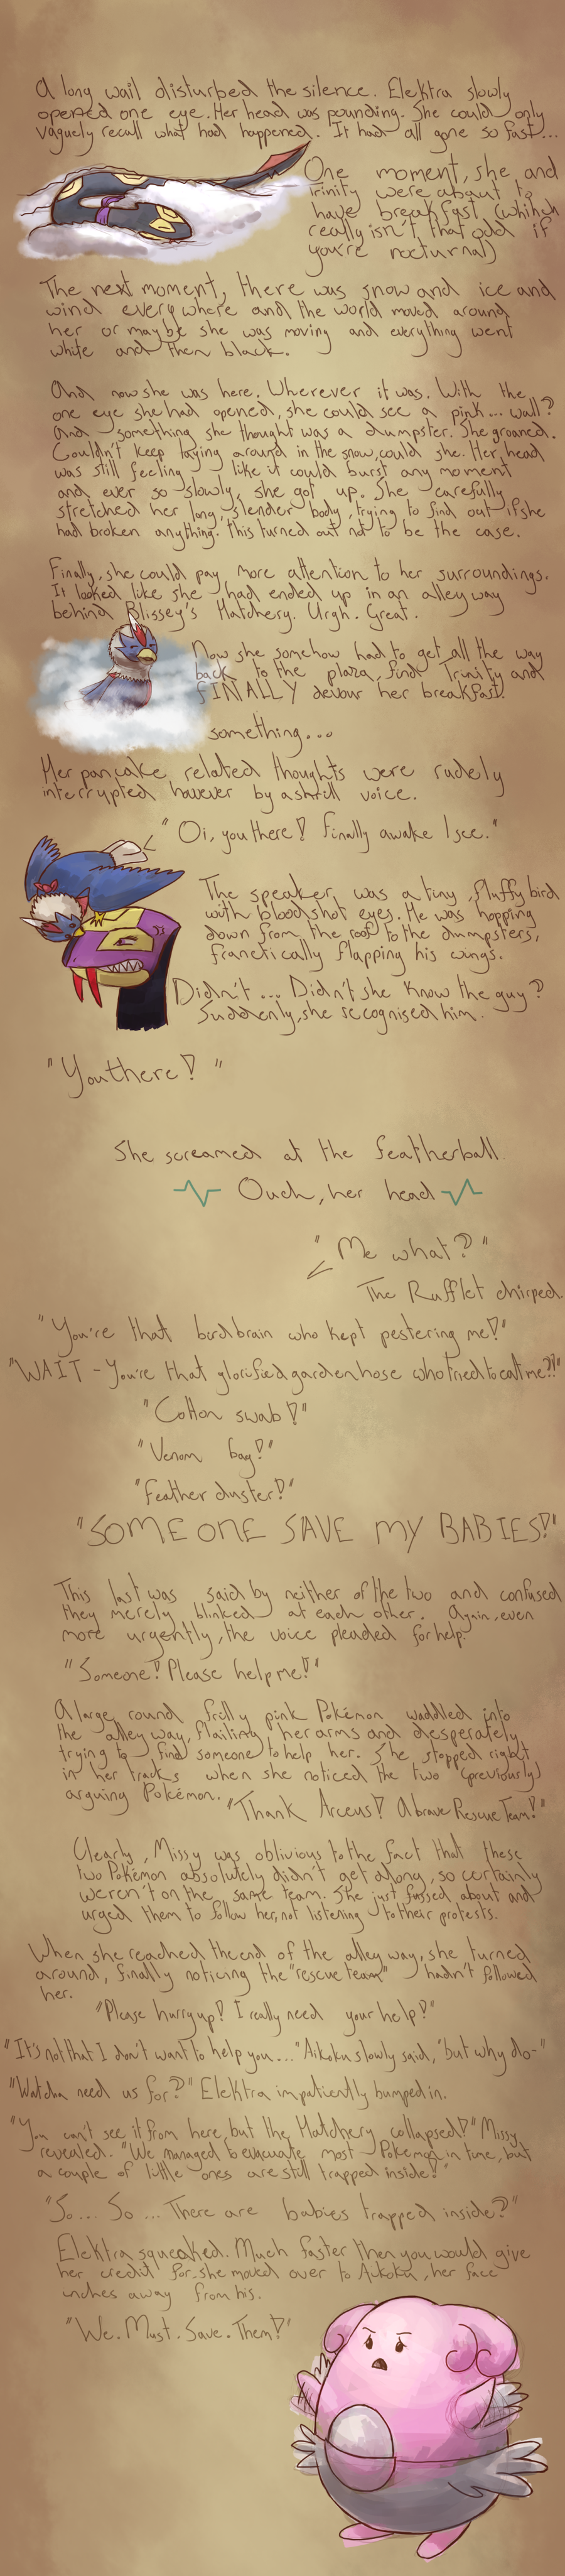 A long wail disturbed the silence. Elektra slowly
opened one eye. Her head was pounding. She could only
vaguely recall what had happened. It had all gone so fast...
One moment, she and
Trinity were about to
have breakfast (which
really isn't that odd if
you're nocturnal)
The next moment, there was snow and ice and
wind everywhere and the world moved around
her or maybe she was moving and everything went
white and then black.
And now she was here. Wherever it was. With the
one eye she had opened, she could see a pink... wall?
And something she thought was a dumpster. She groaned.
Couldn't keep laying around in the snow, could she. Her head
was still feeling like it could burst any moment
and ever so slowly, she got up. She carefully
stretched her long, slender body, trying to find out if she
had broken anything. This turned out not to be the case.
Finally, she could pay more attention to her surroundings.
It looked like she had ended up in an alleyway
behind Blissey's Hatchery. Urgh. Great.
Now she somehow had to get all the way
back to the plaza, find Trinity and
FINALLY devour her breakfast.
something...
Her pancake related thoughts were rudely
interrupted however by a shrill voice.
"Oi, you there! Finally awake I see."
The speaker was a tiny, fluffy bird
with bloodshot eyes. He was hopping
down from the roof to the dumpsters,
franctically flapping his wings.
Didn't... Didn't she know the guy?
Suddenly, she recognised him.
"You there!"
She screamed at the featherball
Ouch, her head
"Me what?"
The Rufflet chirped.
"You're that birdbrain who kept pestering me!"
"WAIT - You're that glorified gardenhose who tried to eat me?!"
"Cotton swab!"
"Venom bag!"
"Feather duster!"
"SOMEONE SAVE MY BABIES!"
This last was said by neither of the two and confused
they merely blinked at each other. Again, even
more urgently, the voice pleaded for help.
"Someone! Please help me!"
A large round frilly pink Pokémon waddled into
the alleyway, flailing her arms and desperately
trying to find someone to help her. She stopped right
in her tracks when she noticed the two (previously)
arguing Pokémon.
"Thank Arceus! A brave Rescue Team!"
Clearly, Missy was oblivious to the fact that these
two Pokémon absolutely didn't get along, so certainly
weren't on the same team. She just fussed about and
urged them to follow her, not listening to their protests.
When she reached the end of the alleyway, she turned
around, finally noticing the "rescue team" hadn't followed
her.
"Please hurry up! I really need your help!"
"It's not that I don't want to help you..." Aikoku slowly said, "but why do-"
"Watcha need us for?" Elektra impatiently bumped in.
"You can't see it from here, but the Hatchery collapsed!" Missy
revealed. "We managed to evacuate most Pokémon in time, but
a couple of little ones are still trapped inside!"
"So... So... There are babies trapped inside?"
Elektra squeaked. Much faster then you would give
her credit for, she moved over to Aikoku, her face
inches away from his.
"We. Must. Save. Them!"